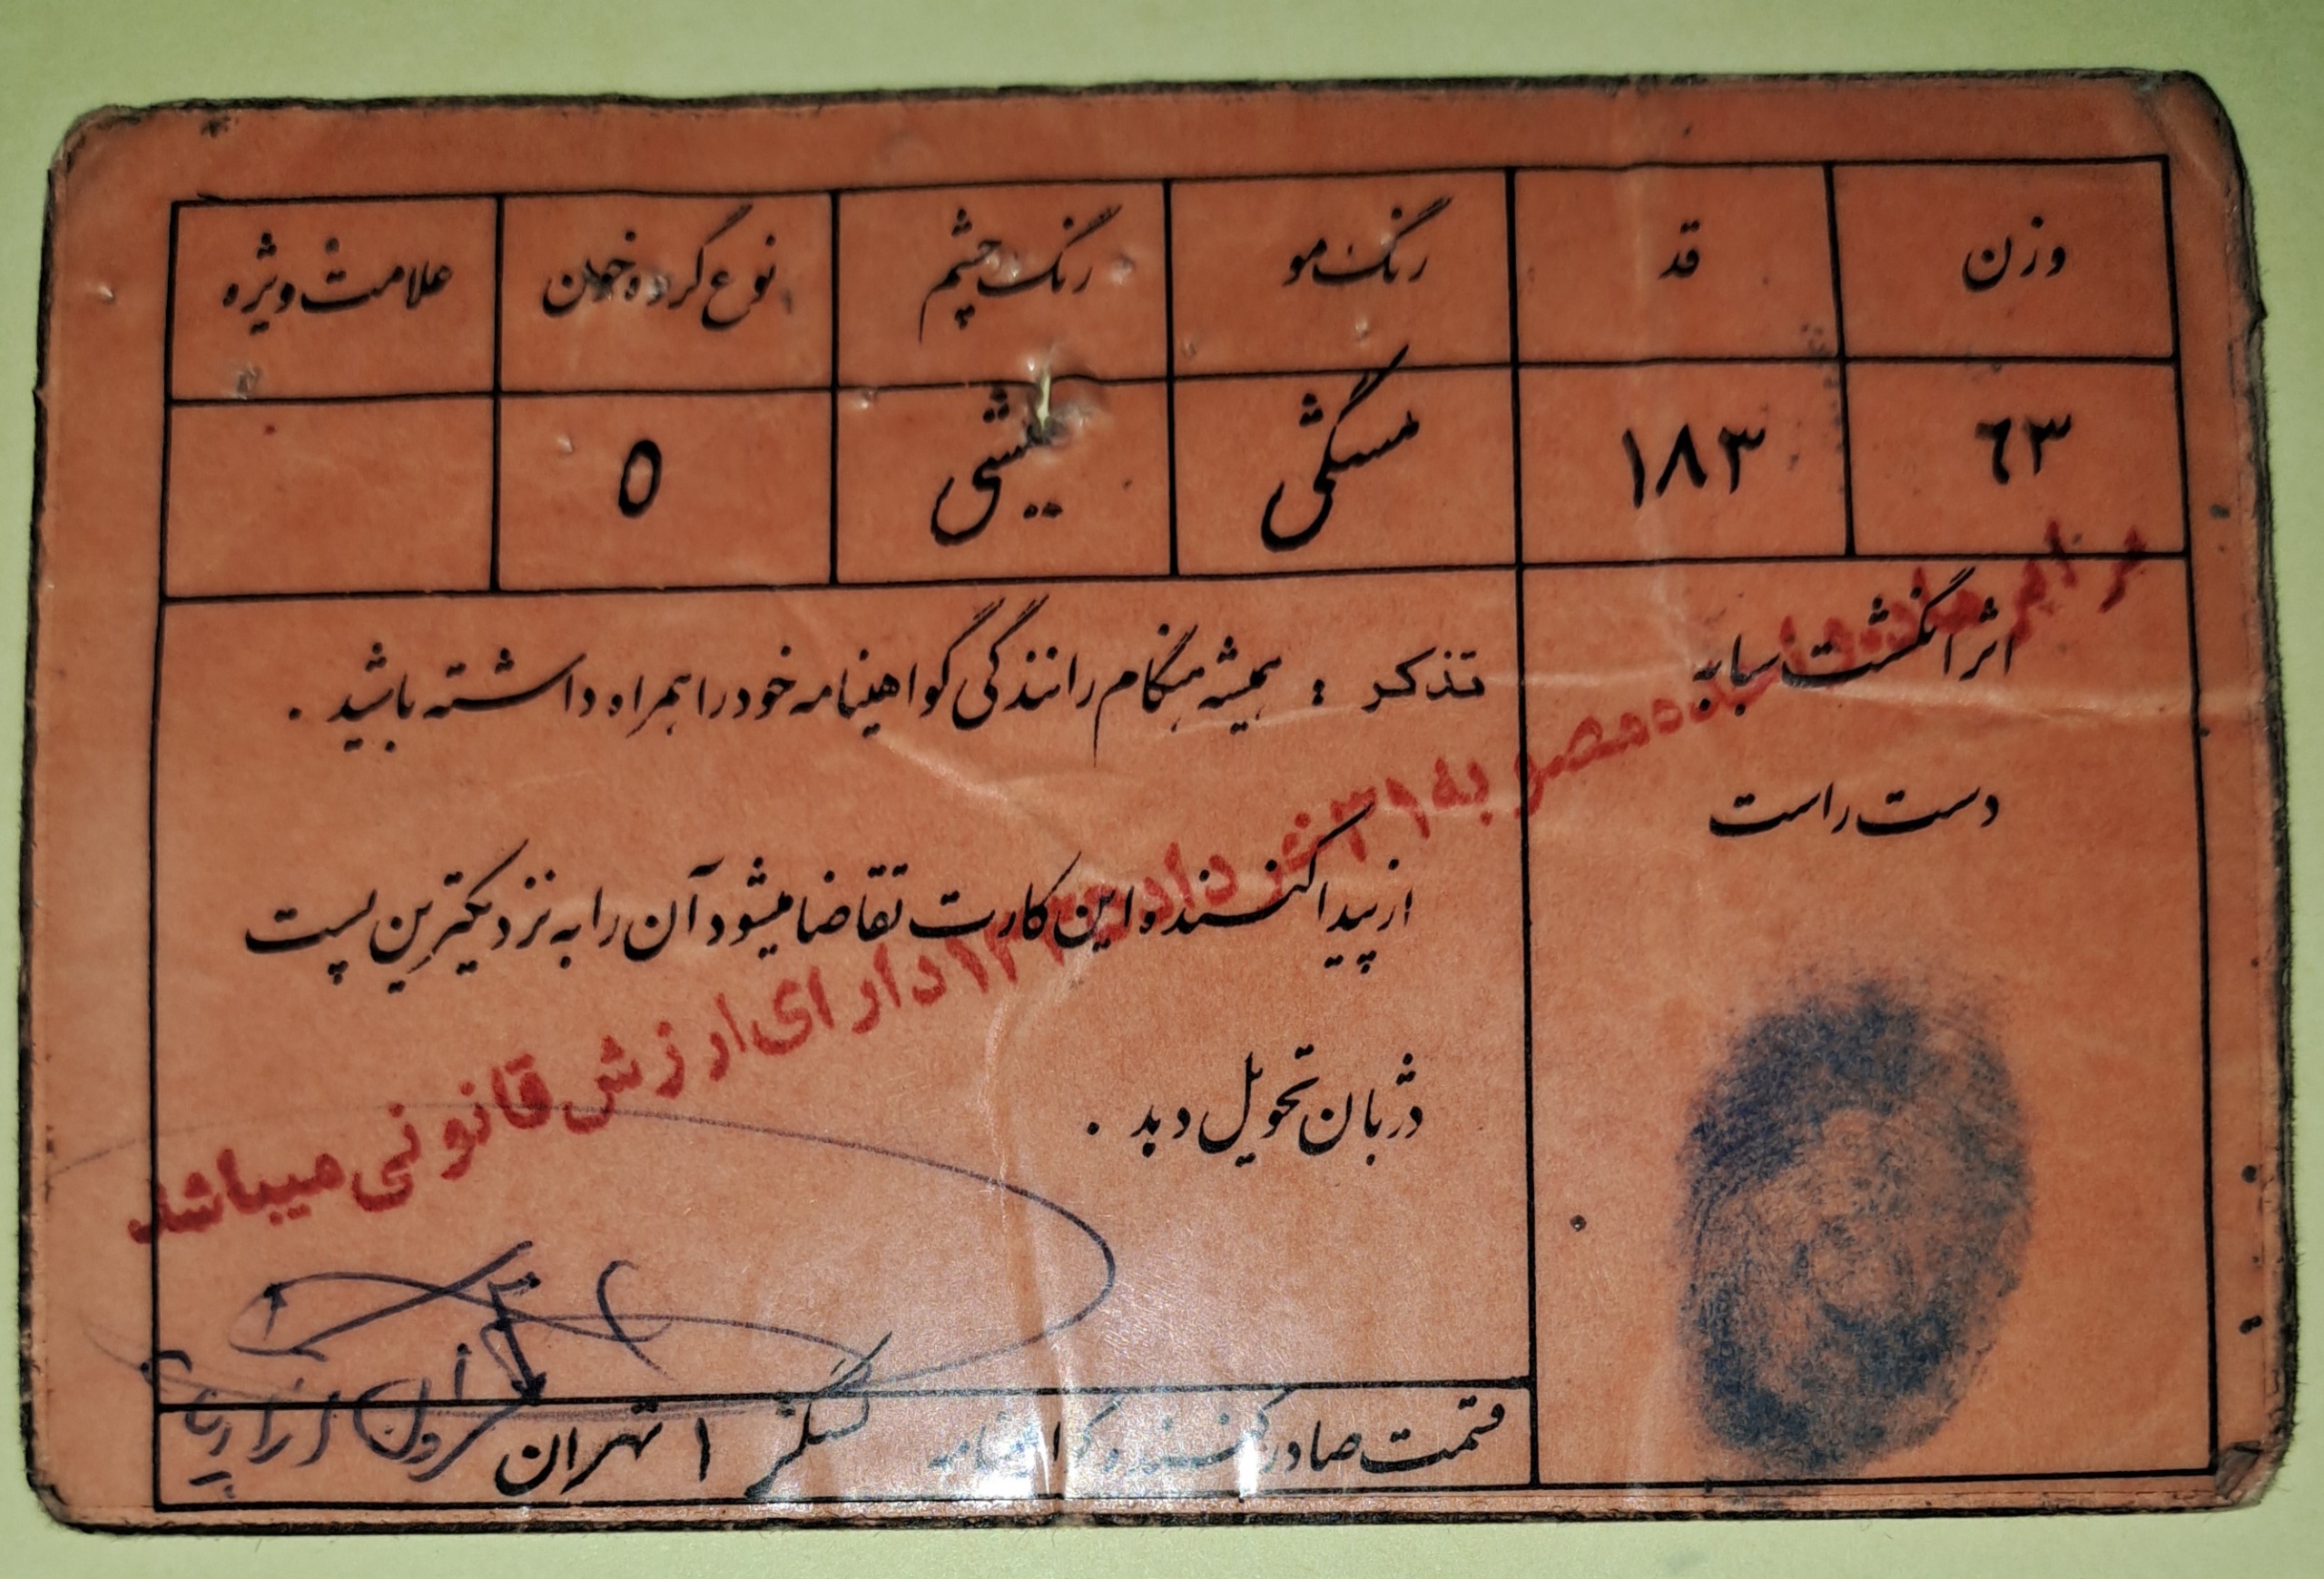 وزن
قد
رنگ مو
رنگ چشم
نوع گروه خون
علامت ویژه
٦٣
١٨٣
مشگی
میشی
O
اثر انگشت سبابه
دست راست
تذکر : همیشه هنگام رانندگی گواهینامه خود را همراه داشته باشید .
از پیدا کننده این کارت تقاضا میشود آن را به نزدیکترین پست
دژبان تحویل دهد .
برابر ماده مصوبه ٣١ خرداد دارای ارزش قانونی میباشد
قسمت صادر کننده گواهینامه لشگر ١ تهران